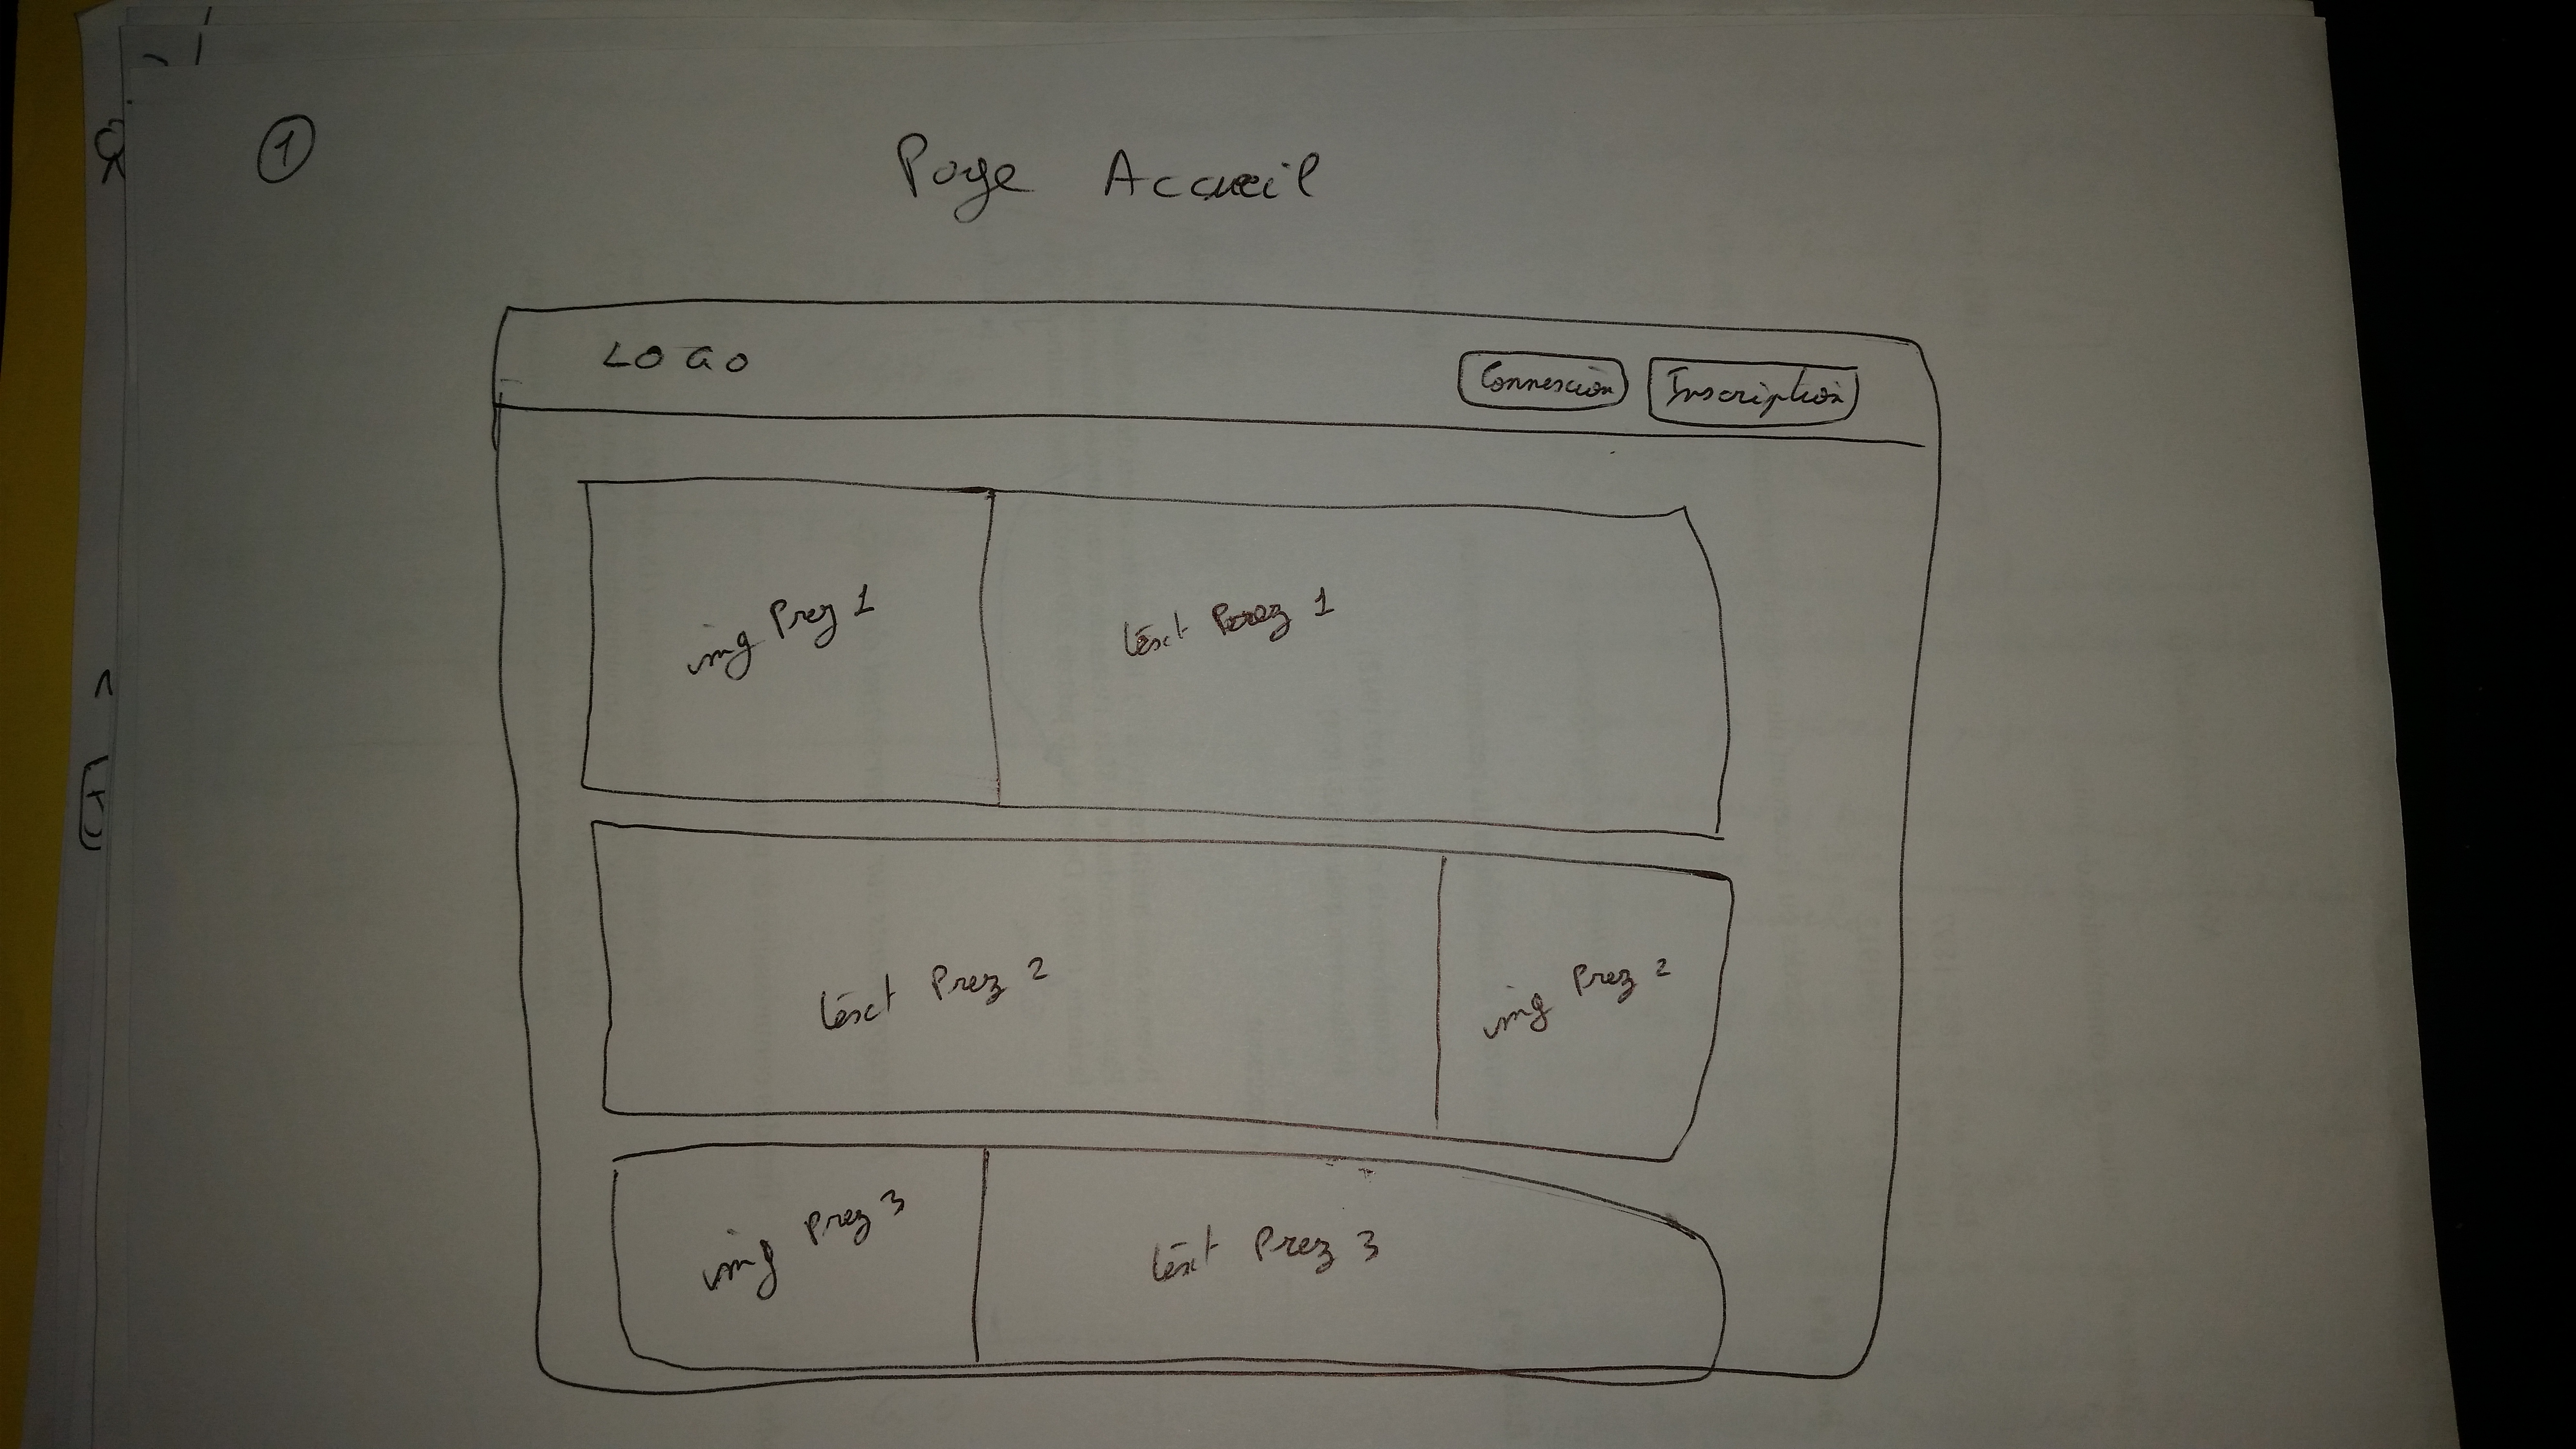 1
Page Accueil
LOGO
Connexion
Inscription
img Prez 1
text Prez 1
text Prez 2
img Prez 2
img Prez 3
text Prez 3